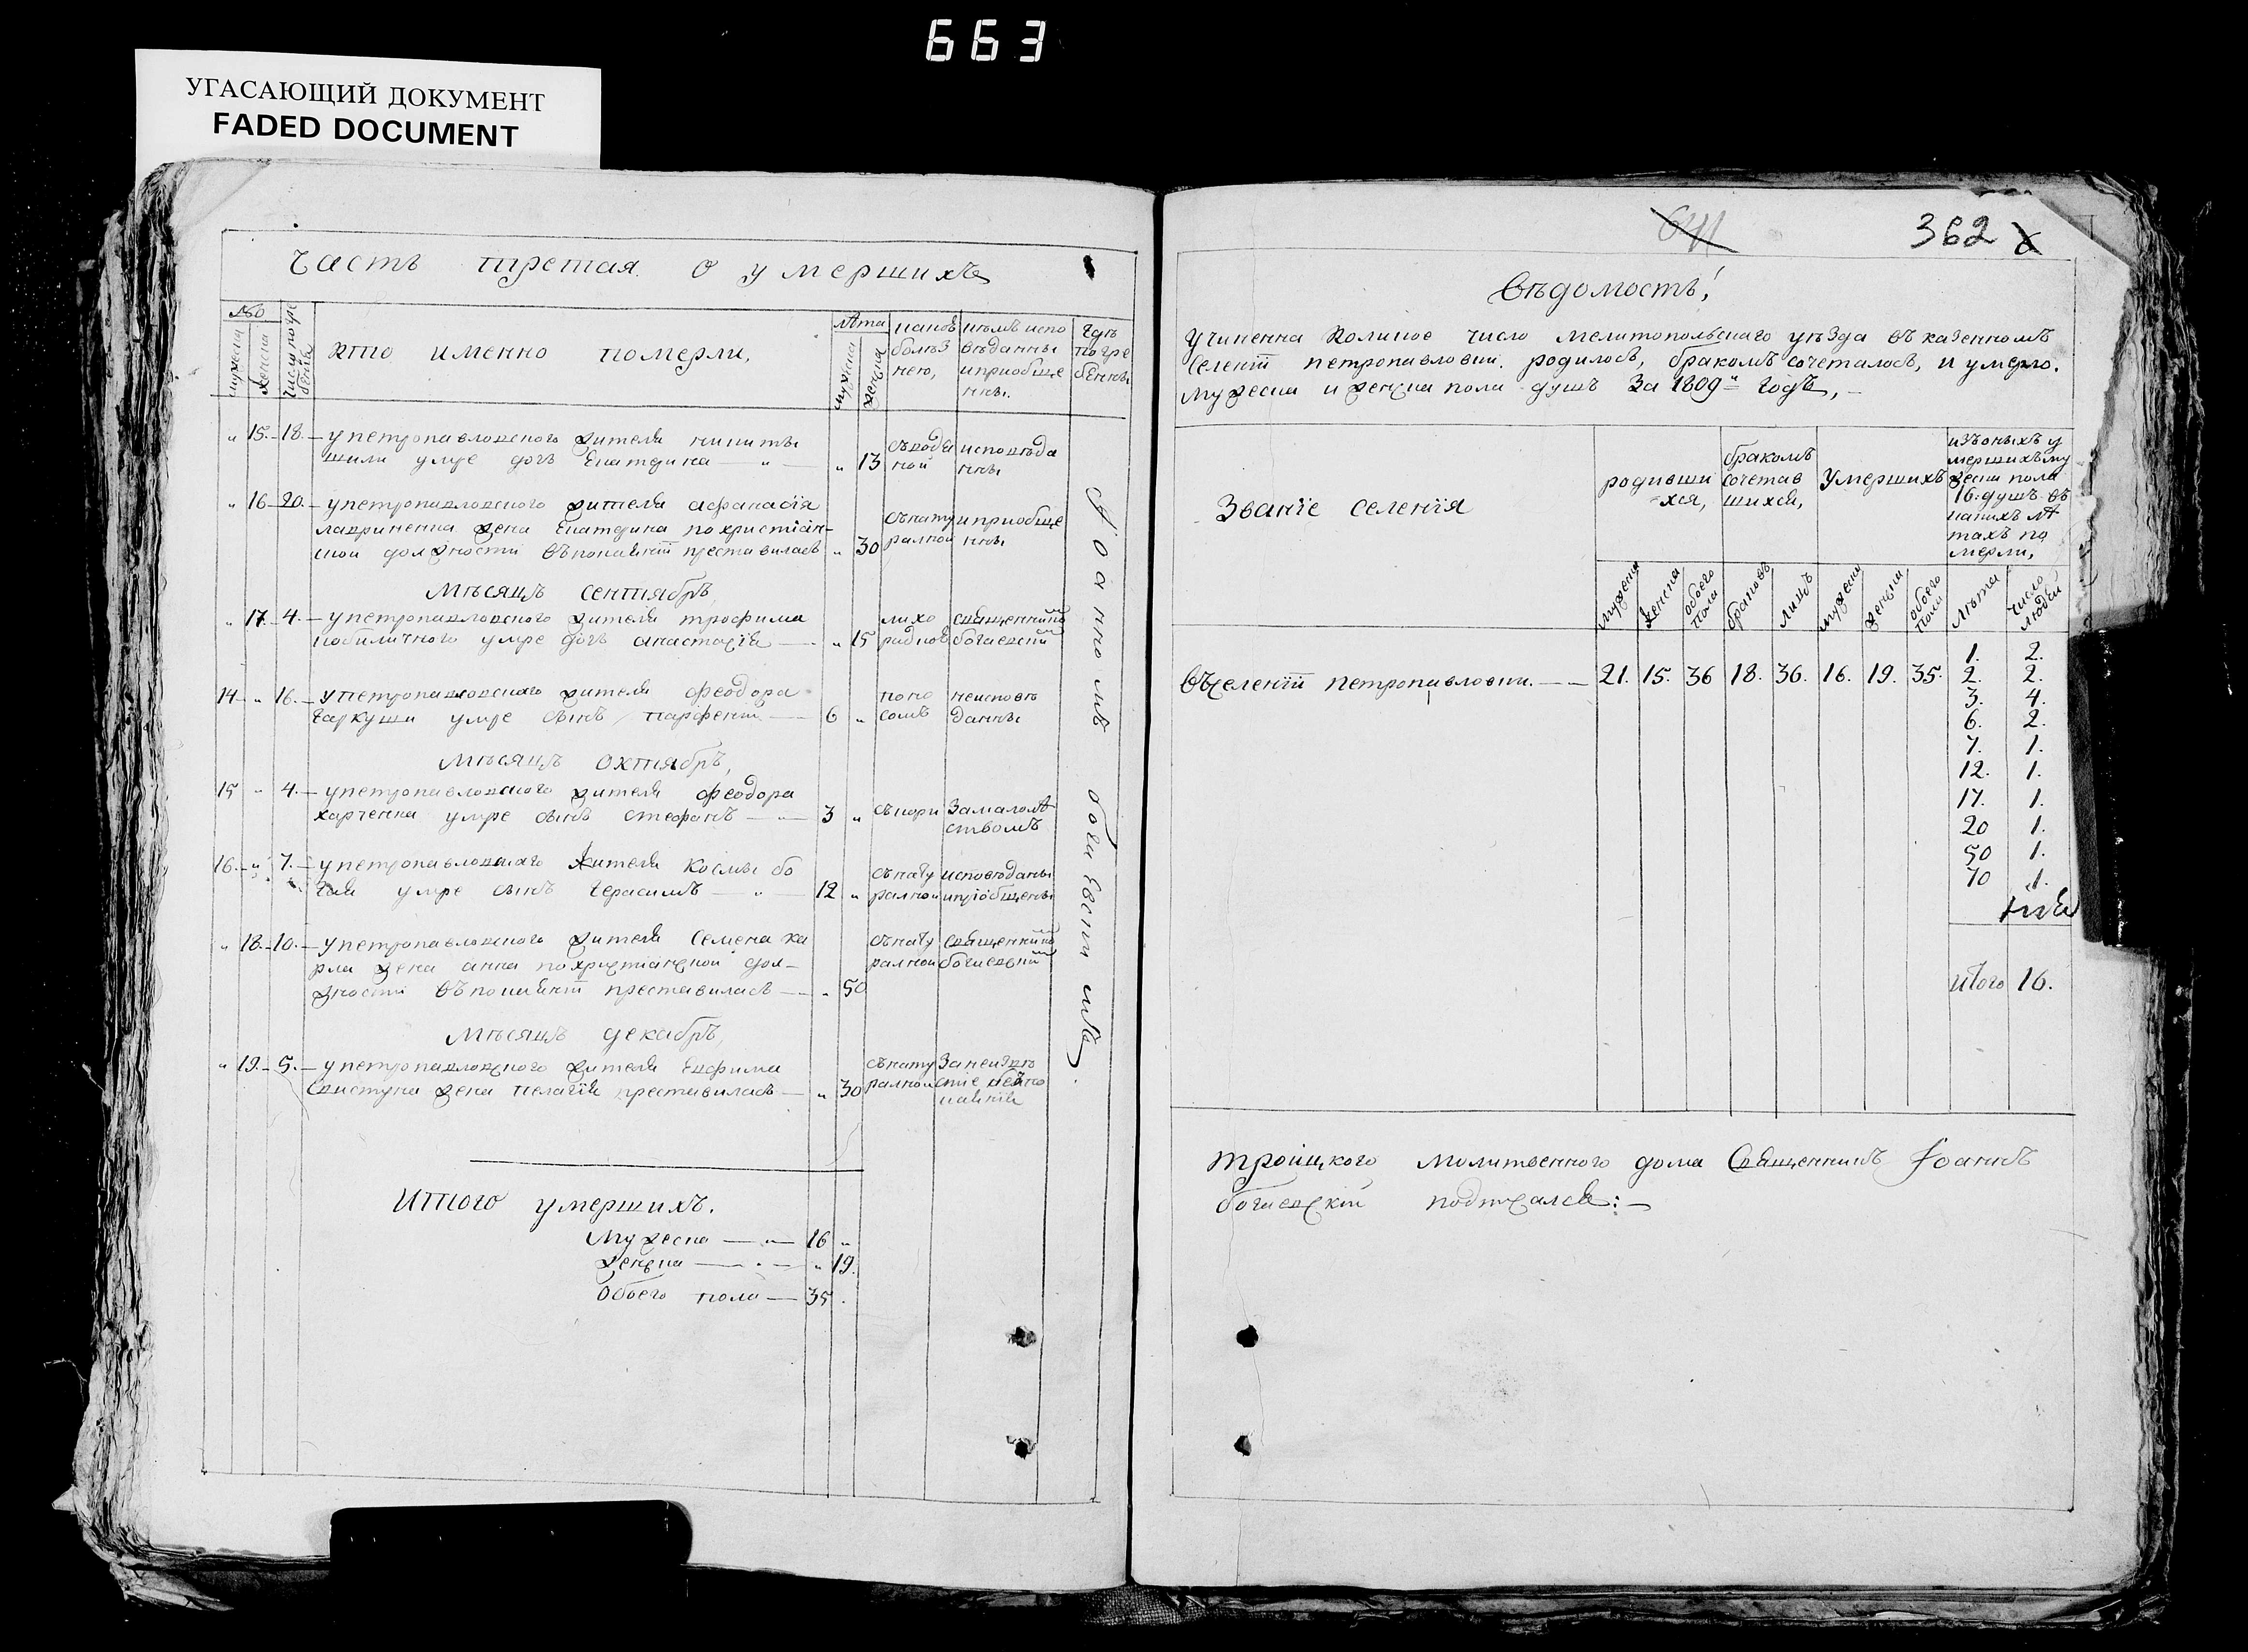 663
УГАСАЮЩИЙ ДОКУМЕНТ
FADED DOCUMENT
Часть третая о умершихъ
№о
мужеска
женска
Число погре
бенія
кто именно померли,
лѣта
мужска
женска
какою
болѣз
нею,
кѣмъ испо
вѣданны
и приобще
нны.
гдѣ
погре
бенны
„ 15. 18. — у петропавловского жителя никиты
шили умре дочь Екатерина — „ — „ 13
съводя
ной
исповѣда
нны
„ 16 20. — у петропавловского жителя афанасія
лавриненка жена Екатерина по христіан-
ской должности въ покаяніи преставилась „ 30
съ нату
ралной
и приобще
нны
Мѣсяцъ сентябрь,
„ 17. 4. — у петропавловского жителя трофима
умре дочь анастасія — „ 15
лихо
радков
священнико
богаевскій
14 „ 16. — у петропавловскаго жителя феодора
гаркуши умре сынъ парфеній — 6 „
поно
сомъ
неисповѣ
данны
Мѣсяцъ октябрь,
15 „ 4. — у петропавловского жителя феодора
харченка умре сынъ стефанъ — 3 „
съ кори
За малолѣ
ствомъ
16. „ 7. — у петропавловскаго жителя космы бо
гая умре сынъ герасимъ — „ — 12 „
съ нату
ралной
исповѣданы
и пріобщены
„ 18. 10. — у петропавловского жителя семена ка
рла жена анна по христианской дол-
жности въ покаяніи преставилась — „ 50
съ нату
ралной
священнико
богаевскій
Мѣсяцъ декабрь,
„ 19. 5. — у петропавловского жителя Евфима
свистуна жена пелагія преставилась — „ 30
съ нату
ралной
За неизвѣ
стіе
каянія
Іоанномъ богаевскимъ
Итого умершихъ.
Мужеска — „ — 16 „
женска — „ — „ 19.
Обоего пола — 35.
362
Вѣдомость!
Учиненна коликое число мелитопольскаго уѣзда въ казенномъ
селеніи петропавловки. родилось, бракомъ сочеталось, и умерло.
мужеска и женска пола душъ За 1809й годъ, —
Званіе селенія
родивши
хся,
бракомъ
сочетав
шихся,
умершихъ
изъ оныхъ у
мершихъ му
жеска пола
16. душъ въ
какихъ лѣ
тахъ по
мерли,
мужеска
женска
обоего
пола
браковъ
лицъ
мужеска
женска
обоего
пола
лѣта
число
людей
Въ селеніи петропавловки. — 21. 15. 36 18. 36. 16. 19. 35.
1. 2.
2. 2.
3. 4.
6. 2.
7. 1.
12. 1.
17. 1.
20 1.
50 1.
70 1.
Итого 16.
троицкого молитвенного дома Священникъ Іоаннъ
богаевскій подписался: —